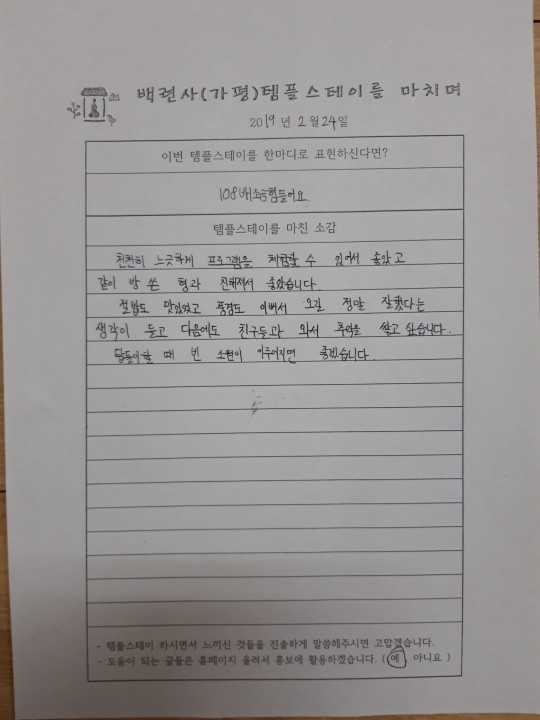 백련사(가평)템플스테이를 마치며
2019 년 2 월 24 일
이번 템플스테이를 한마디로 표현하신다면?
108배 조금힘들어요.
템플스테이를 마친 소감
천천히 느긋하게 프로그램을 체험할 수 있어서 좋았고
같이 방 쓴 형과 친해져서 좋았습니다.
절밥도 맛있었고 풍경도 이뻐서 오길 정말 잘했다는
생각이 듣고 다음에도 친구들과 와서 추억을 쌓고 싶습니다.
탑돌이할 때 빈 소원이 이루어지면 좋겠습니다.
- 템플스테이 하시면서 느끼신 것들을 진솔하게 말씀해주시면 고맙겠습니다.
- 도움이 되는 글들은 홈페이지 올려서 홍보에 활용하겠습니다. ( 예 아니요 )